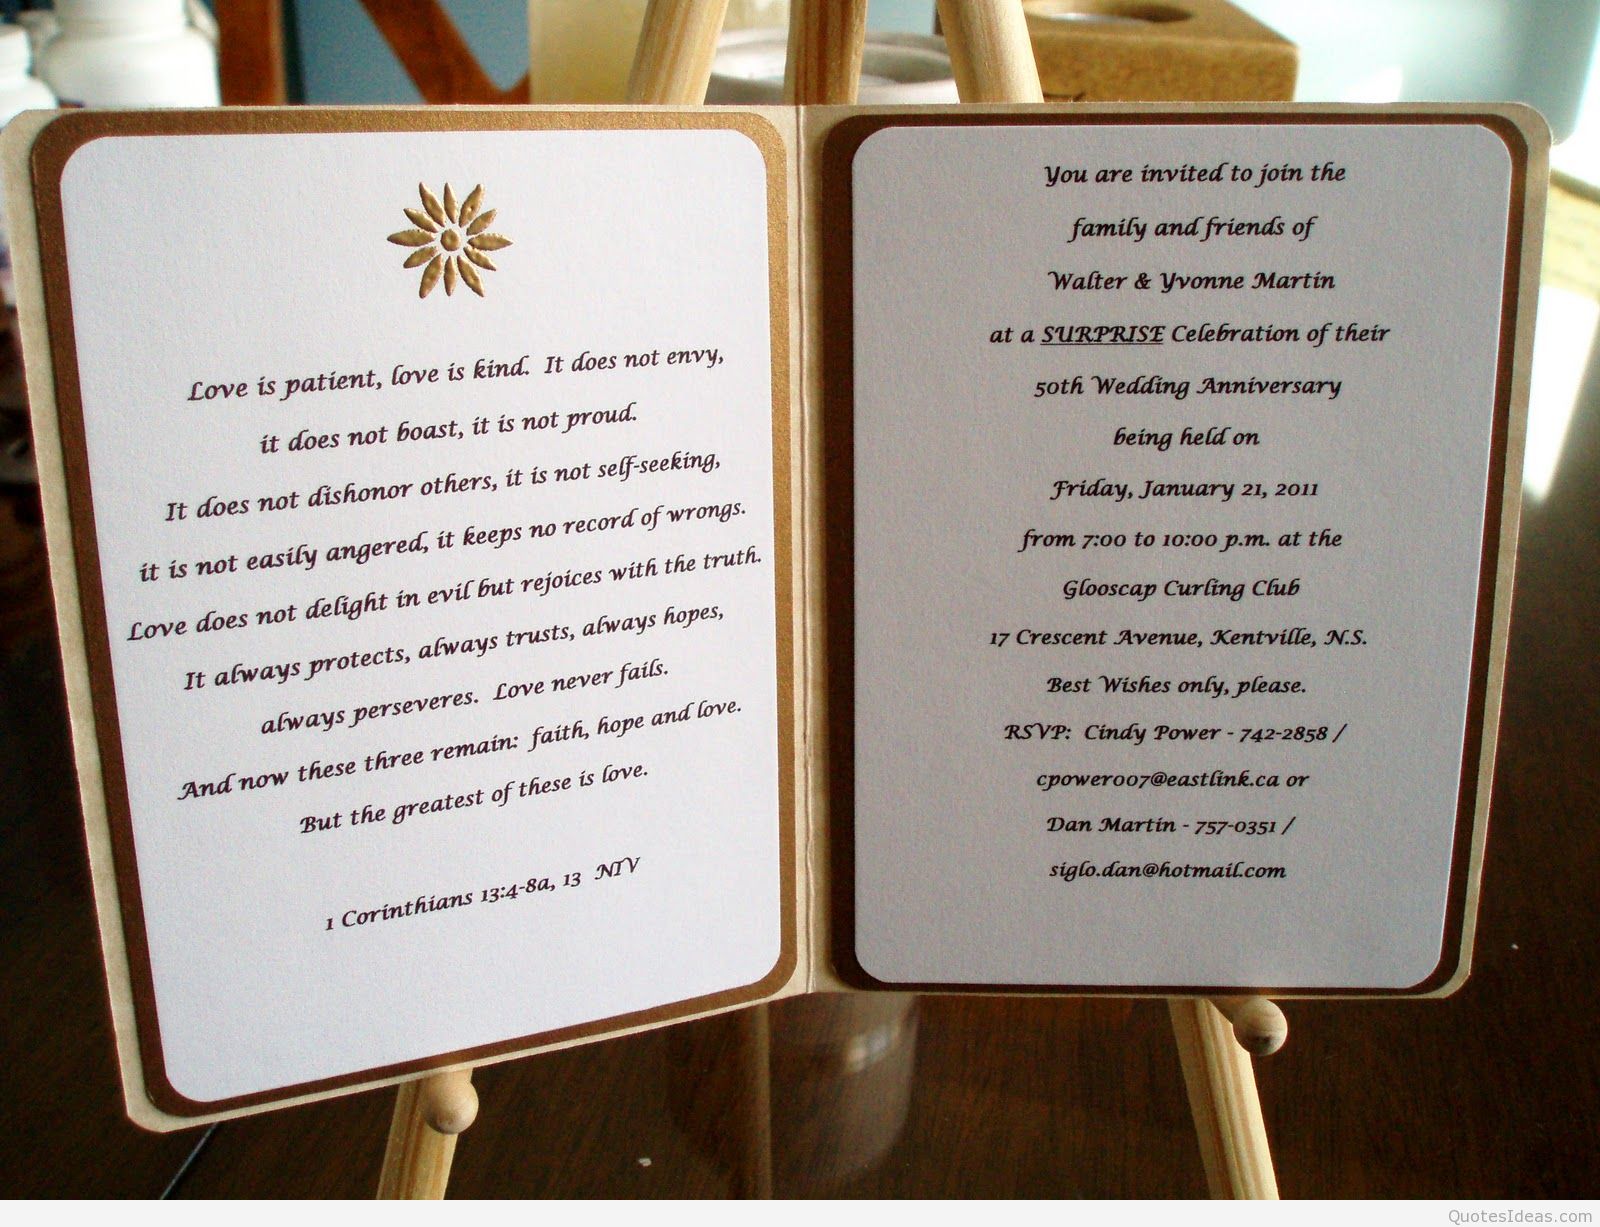 Love is patient, love is kind. It does not envy,
it does not boast, it is not proud.
It does not dishonor others, it is not self-seeking,
it is not easily angered, it keeps no record of wrongs.
Love does not delight in evil but rejoices with the truth.
It always protects, always trusts, always hopes,
always perseveres. Love never fails.
And now these three remain: faith, hope and love.
But the greatest of these is love.
1 Corinthians 13:4-8a, 13 NIV
You are invited to join the
family and friends of
Walter & Yvonne Martin
at a SURPRISE Celebration of their
50th Wedding Anniversary
being held on
Friday, January 21, 2011
from 7:00 to 10:00 p.m. at the
Glooscap Curling Club
17 Crescent Avenue, Kentville, N.S.
Best Wishes only, please.
RSVP: Cindy Power - 742-2858 /
cpower007@eastlink.ca or
Dan Martin - 757-0351 /
siglo.dan@hotmail.com
QuotesIdeas.com